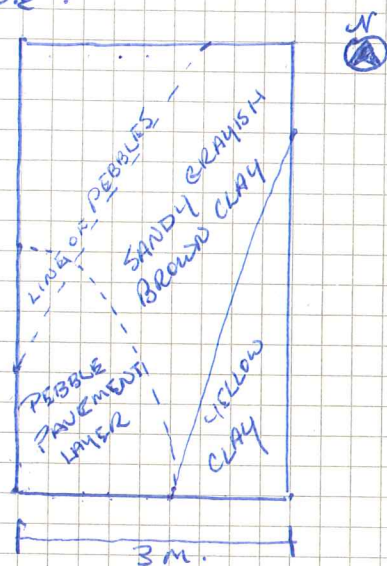 N
LINE OF PEBBLES
SANDY GRAYISH
BROWN CLAY
PEBBLE
PAVEMENT
LAYER
YELLOW
CLAY
3 m.